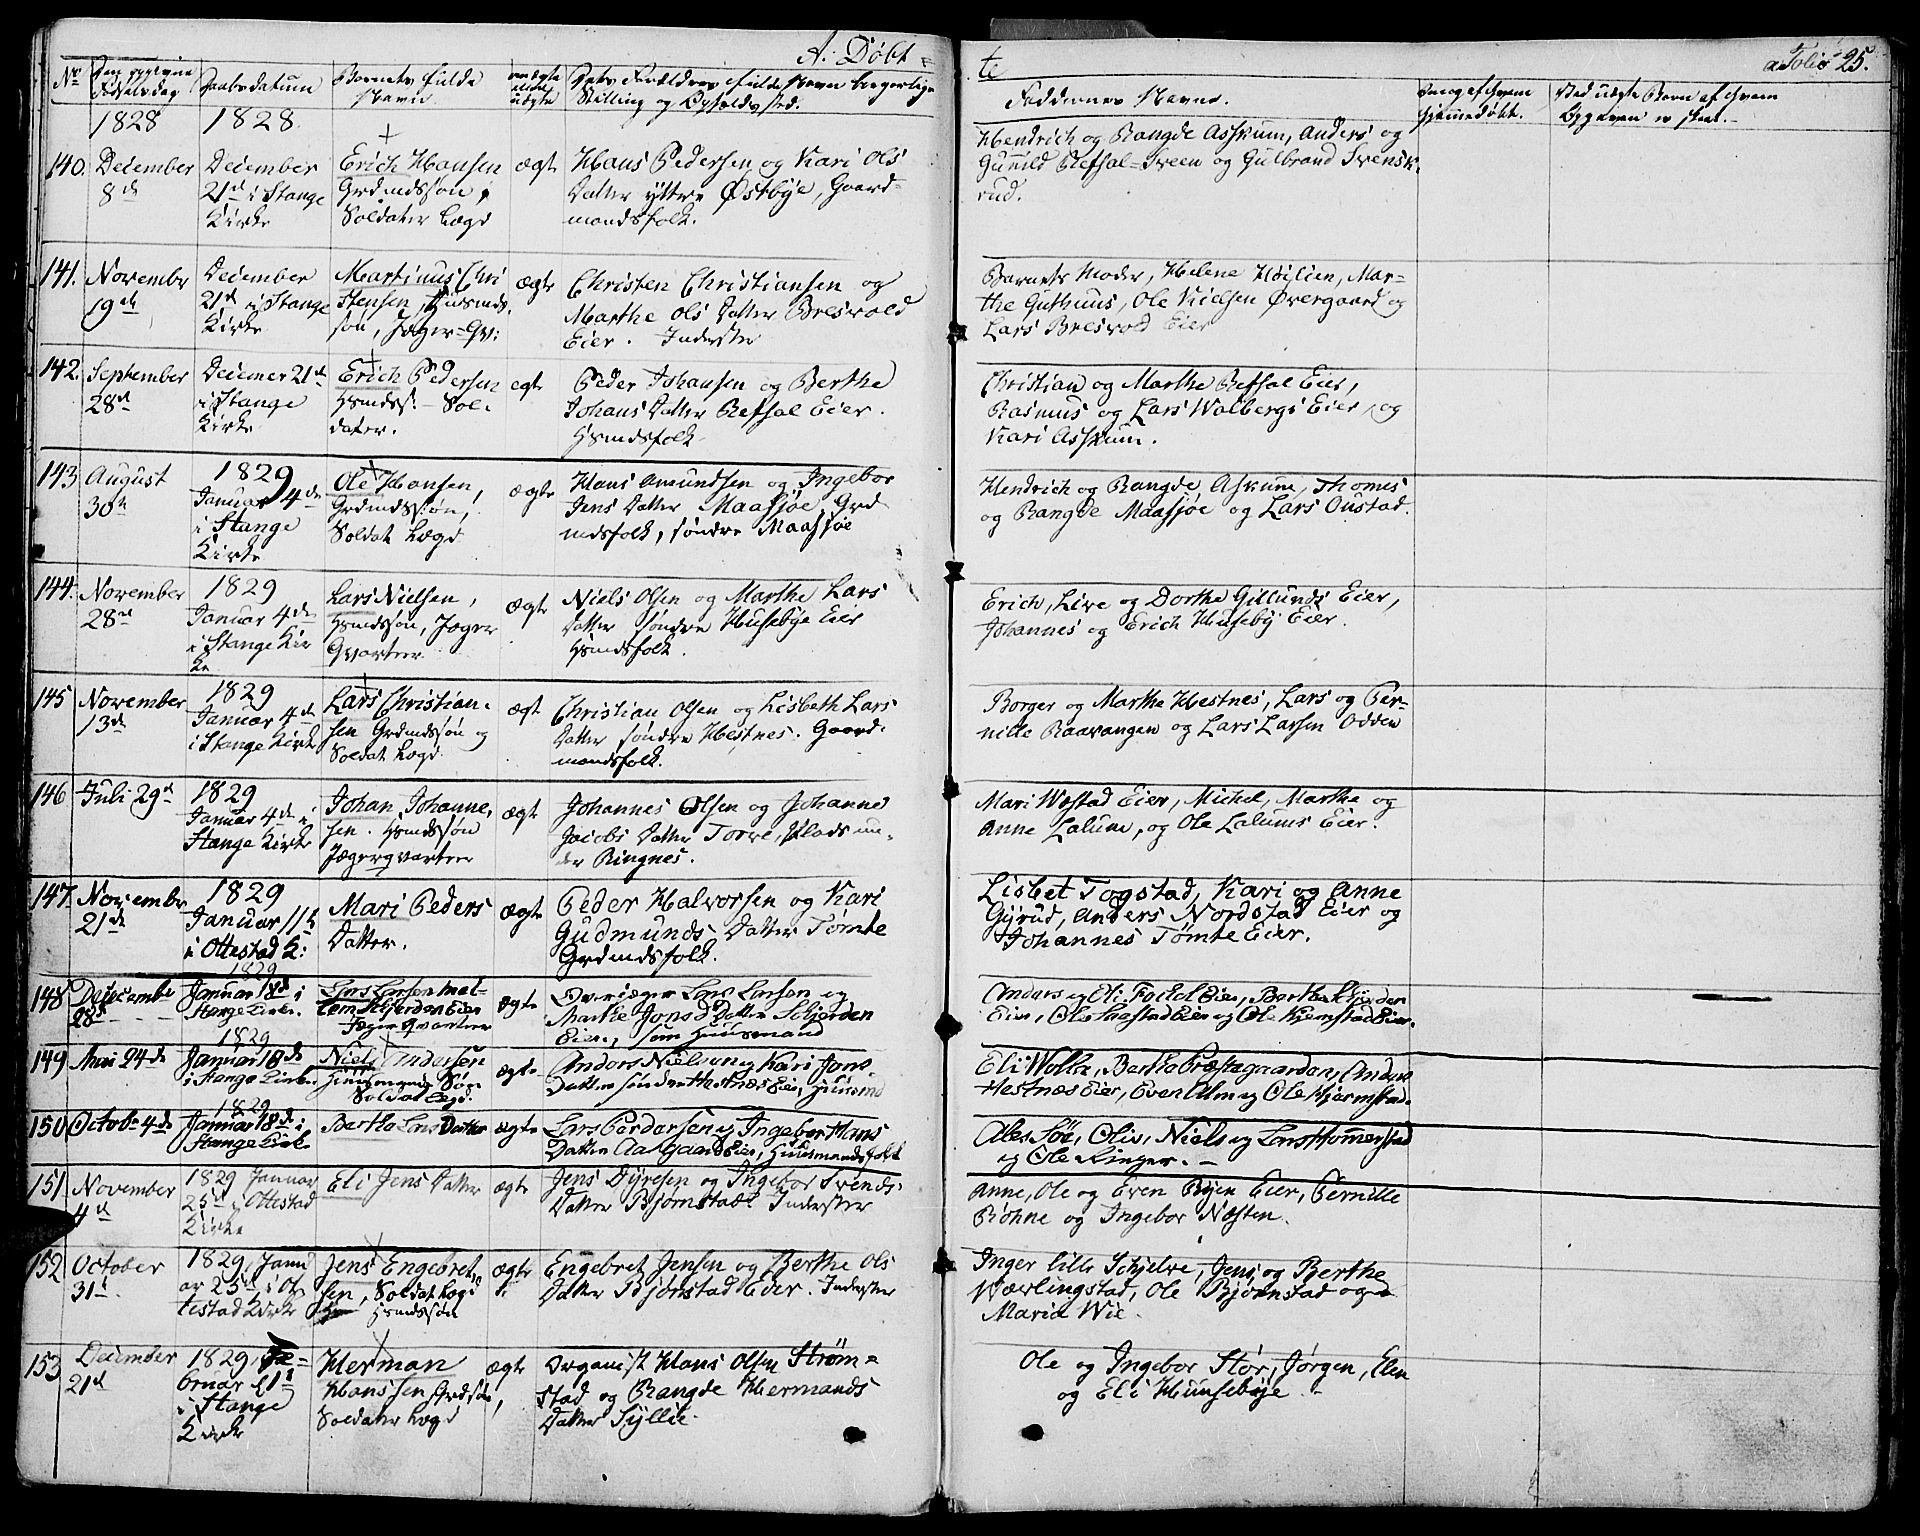 A. Døbte
a Folio 25.
No
Den opgivne Fødselsdag
Daabsdatum
Barnets fulde Navn
om ægte eller uægte
Dets Forældres fulde Navn borgerlige Stilling og Opholdssted.
Faddernes Navne.
hvem
hjemmedøbt.
Ved uægte Barn af hvem
Opgaven er skeet.
1828
1828
140.
December
8de
December
21de i Stange
Kirke
Erich Hansen
Grdmdssøn,
Soldater Lægd
ægte
Hans Pedersen og Kari Ols
Datter yttre Østbye, Gaard-
mandsfolk.
Hendrich og Rangde Askum, Anders og
Gunild Refsal-Sveen og Gulbrand Svensk-
rud.
141.
November
19de
December
21de i Stange
Kirke
Martinus Chri
stensen, Huusmds.
søn, Jæger=Qv:
ægte
Christen Christiansen og
Marthe Ols Datter Bresvold
Eier. Inderster
Barnets Moder, Helene Höilien, Mar-
the Guthuus, Ole Nielsen Øvergaard og
Lars Bresvold Eier
142.
September
28de
Decemer 21de
i Stange
Kirke
Erich Pedersen
Hsmdss: - Sol-
dater.
ægte
Peder Johansen og Berthe
Johans Datter Refsal Eier.
Hsmdsfolk
Christian og Marthe Refsal Eier,
Rasmus og Lars Walbergs Eier, og
Kari Askum.
143
August
30te
1829
Januar 4de
i Stange
Kirke
Ole Hansen,
Grdmdssøn,
Soldat Lægd
ægte
Hans Amundsen og Ingebor
Jens Datter Maasjøe, Grd
mdsfolk, søndre Maasjøe
Hendrich og Rangde Askum, Thomes
og Rangde Maasjøe og Lars Oustad.
144.
November
28de
1829
Januar 4de
i Stange Kir
ke
Lars Nielsen,
Hsmdssøn, Jæger
Qvarteer
ægte
Niels Olsen og Marthe Lars
Datter søndre Husebye Eier
Hsmdsfolk.
Erich, Live og Dorthe Gillunds Eier,
Johannes og Erich Huseby Eier.
145
November
13de
1829
Januar 4de
i Stange Kirke
Lars Christian-
sen Grdmdssøn og
Soldat Lægd
ægte
Christian Olsen og Lisbeth Lars
Datter søndre Hestnes. Gaard-
mandsfolk.
Borger og Marthe Hestnes, Lars og Per-
nille Raavangen og Lars Larsen Odden
146
Juli 29de
1829
Januar 4de i
Stange Kirke
Johan Johanne-
sen. Hsmdssøn
Jægerqvarteer
ægte
Johannes Olsen og Johanne
Jacobs Datter Torve, Plads un-
der Ringnes.
Mari Westad Eier, Michel, Marthe og
Anne Lalum, og Ole Lalums Eier.
147.
November
21de
1829
Januar 11te
i Ottestad K:
Mari Peders
Datter.
ægte
Peder Halvorsen og Kari
Gudmunds Datter Tømte
Grdmdsfolk.
Lisbet Togstad, Kari og Anne
Gyrud, Anders Nordstad Eier og
Johannes Tømte Eier.
148
December
28de
1829
Januar 18de i
Stange Kirke.
Lars Larsen
Skjerden Eier
Jæger Qvarteer
ægte
Overjæger Lars Larsen og
Marthe Jonsd Datter Skjerden
Eier, som Huusmand
Anders og Eli Fockol Eier, Berthe Skjerden
Eier, Ole Saastad Eier og Ole Kjemstad Eier.
149
Mai 24de
1829
Januar 18de
i Stange Kirke.
Niels Andersen
Huusmands Søn
Soldat Lægd.
ægte
Anders Nielsen og Kari Jens
Datter søndre Hestnæs Eier, Huusmd
Eli Wolla, Berthe Præstegaarden, Anders
Hestnæs Eier, Even Alm og Ole Kjemstad.
150
Octobr 4de
1829
Januar 18de i
Stange Kirke.
Berthe Lars Datter
ægte
Lars Pedersen og Ingebor Hans
Datter Aalgaard Eier, Huusmandsfolk
Ales Söe, Oliv, Niels og Lars Hommerstad
og Ole Ringer. -
151
November
4de
1829 Januar
25de i Ottestad
Kirke
Eli Jens Datter
ægte
Jens Dyresen og Ingebor Svends
Datter Bjørnstad Inderster
Anne, Ole og Even Ryen Eier, Pernille
Røhne og Ingebor Næsten.
152
October
31te
1829, Janu
ar 25de i Ot
testad Kirke
Jens Engebret-
sen, Soldat Lægd
Hsmdssøn
ægte
Engebret Jensen og Berthe Ols
Datter Bjørnstad Eier. Inderster
Inger lille Schjelve, Jens og Berthe
Wærlingstad, Ole Bjørnstad og
Maria Wie.
153
December
21de
1829. Fe-
bruar d 1te
i Stange
Kirke
Herman
Hanssen Grdsøn,
Soldater Lægd
ægte
Organist Hans Olsen Strøm-
stad og Rangde Hermands
Datter Syllie.
Ole og Ingebor Stör, Jørgen, Elen
og Eli Huusebye. -